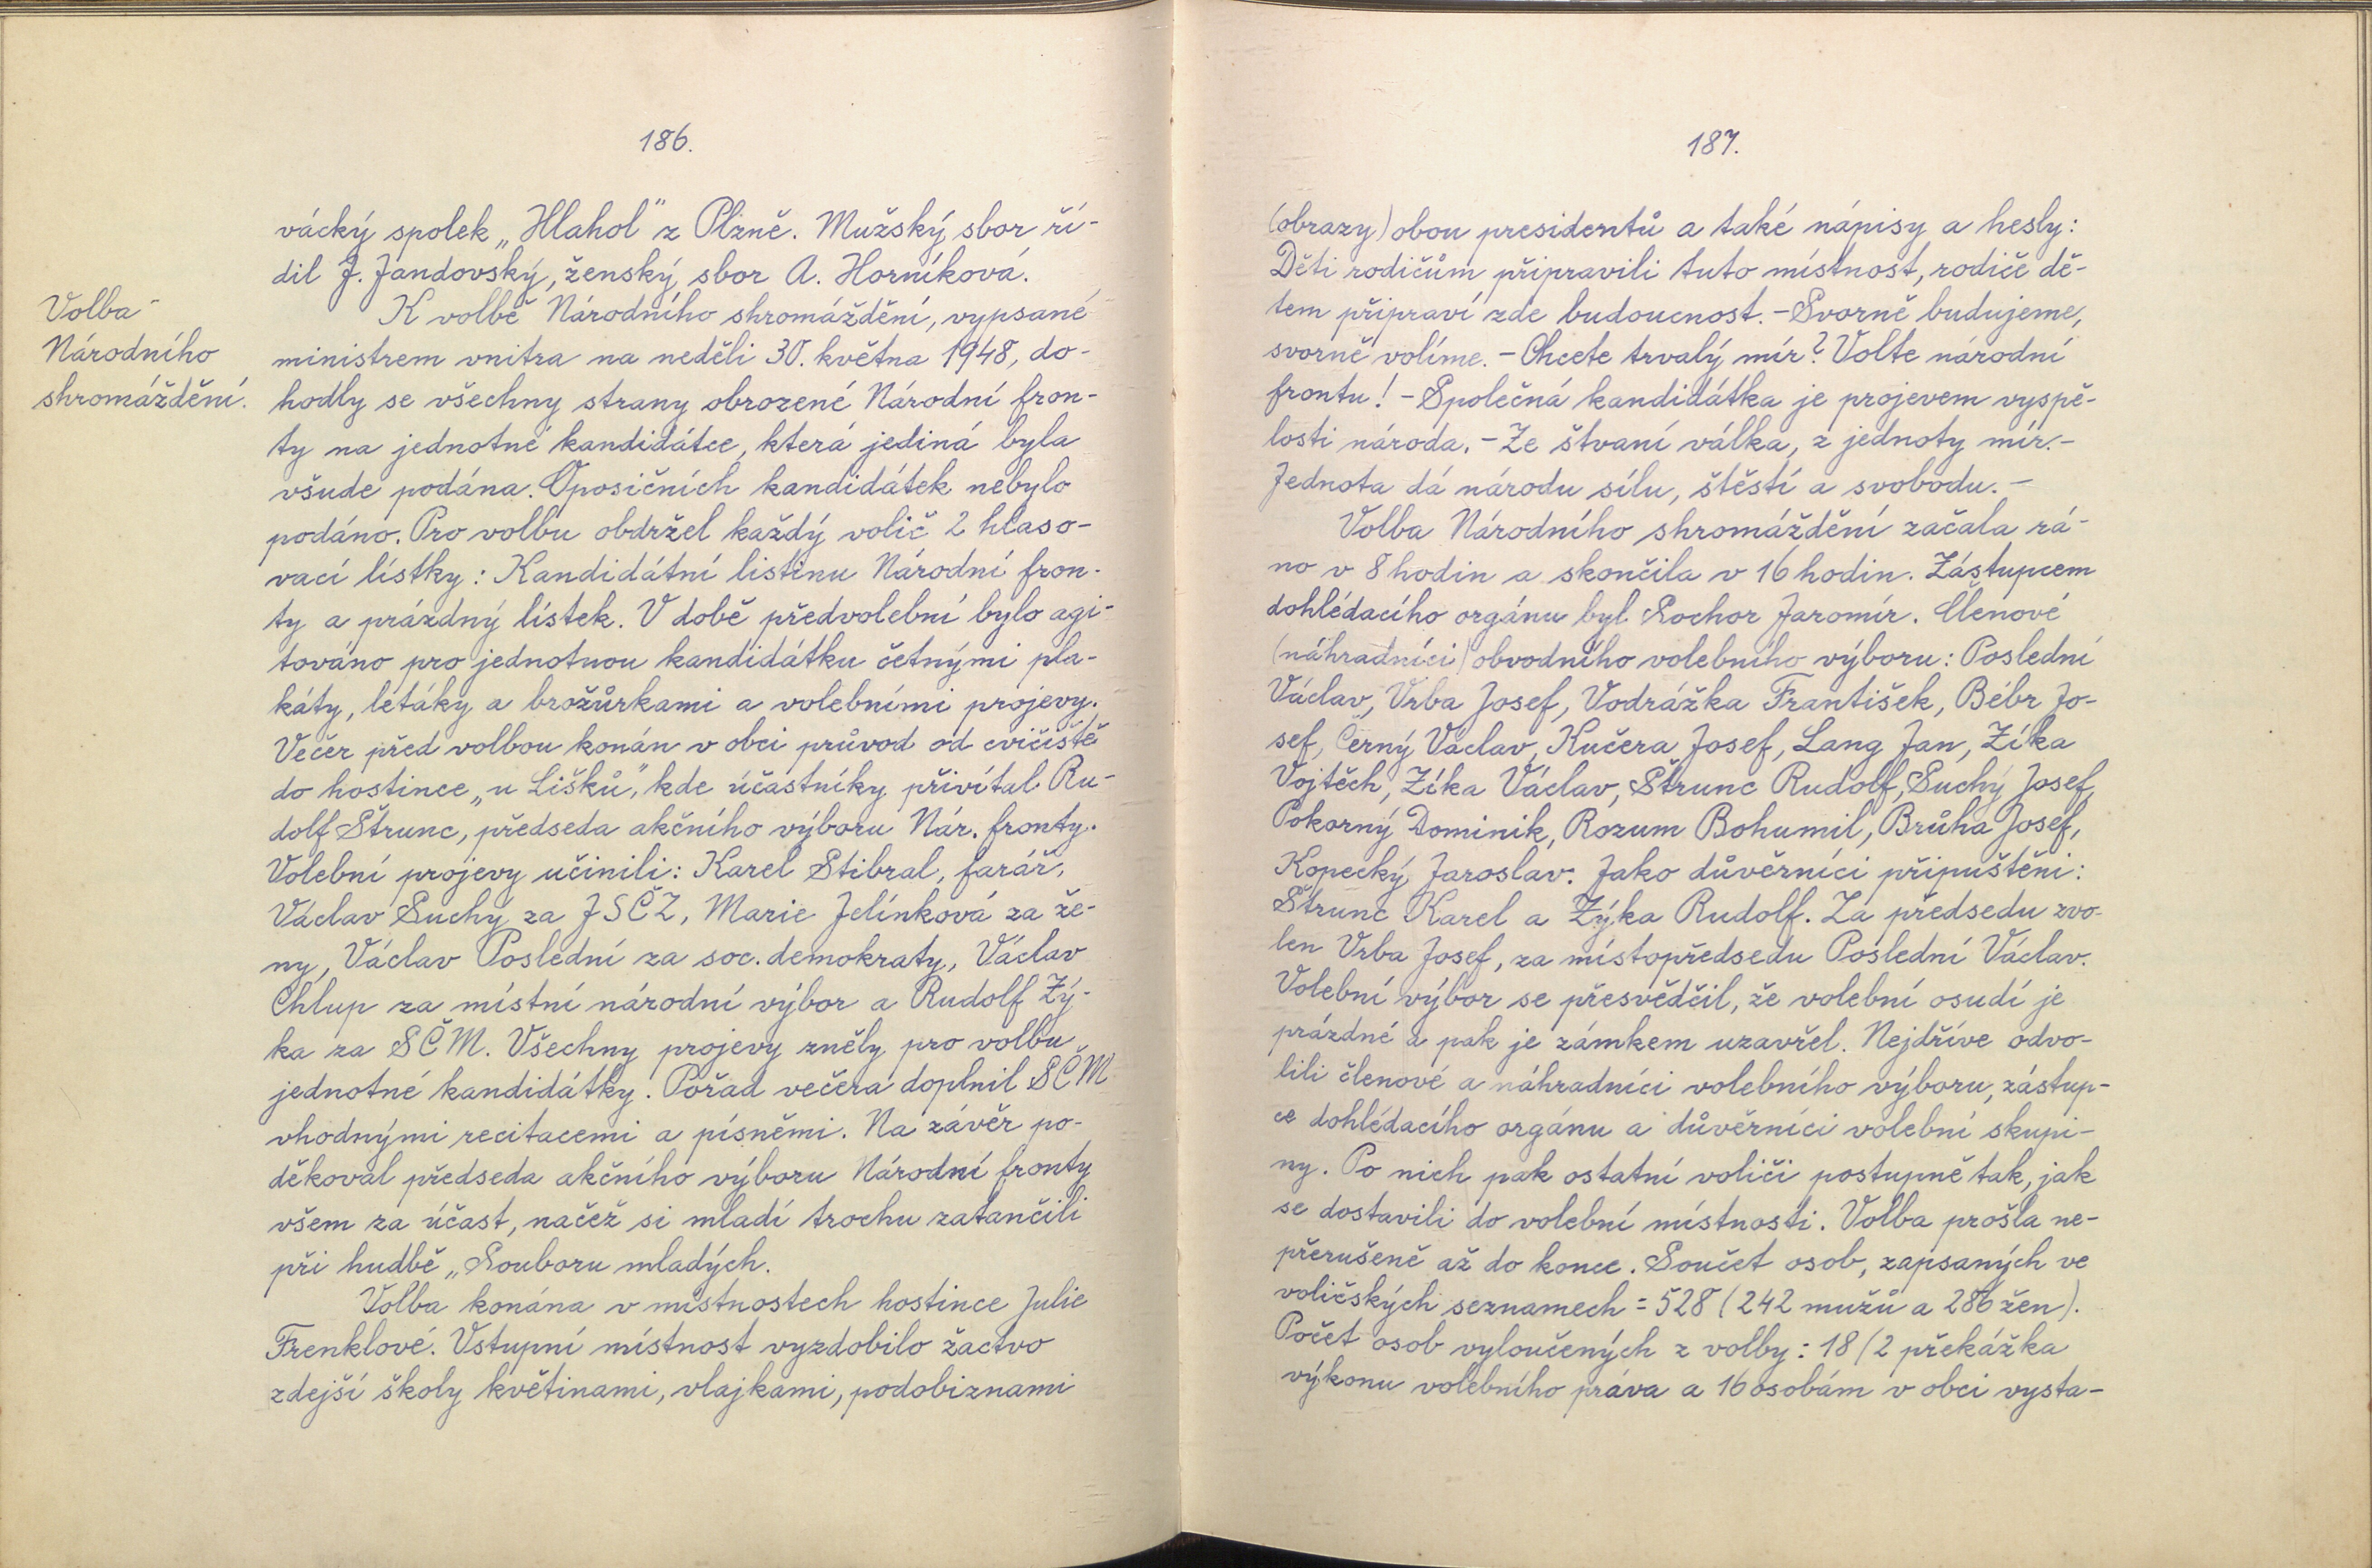 186.
vácký spolek „Hlahol" z Plzně. Mužský sbor ří-
dil J. Jandovský, ženský sbor A. Horníková.
Volba
Národního
shromáždění.
K volbě Národního shromáždění, vypsané
ministrem vnitra na neděli 30. května 1948, do-
hodly se všechny strany obrozené Národní fron-
ty na jednotné kandidátce, která jediná byla
všude podána. Oposičních kandidátek nebylo
podáno. Pro volbu obdržel každý volič 2 hlaso-
vací lístky: Kandidátní listinu Národní fron-
ty a prázdný lístek. V době předvolební bylo agi-
továno pro jednotnou kandidátku četnými pla-
káty, letáky a brožůrkami a volebními projevy.
Večer před volbou konán v obci průvod od cvičiště
do hostince „u Lišků", kde účastníky přivítal Ru-
dolf Štrunc, předseda akčního výboru Nár. fronty.
Volební projevy učinili: Karel Stibral, farář,
Václav Suchý za JSČZ, Marie Jelínková za že-
ny, Václav Poslední za soc. demokraty, Václav
Chlup za místní národní výbor a Rudolf Zý-
ka za SČM. Všechny projevy zněly pro volbu
jednotné kandidátky. Pořad večera doplnil SČM
vhodnými recitacemi a písněmi. Na závěr po-
děkoval předseda akčního výboru Národní fronty
všem za účast, načež si mladí trochu zatančili
při hudbě „Souboru mladých.
Volba konána v místnostech hostince Julie
Frenklové. Vstupní místnost vyzdobilo žactvo
zdejší školy květinami, vlajkami, podobiznami
187.
(obrazy) obou presidentů a také nápisy a hesly:
Děti rodičům připravili tuto místnost, rodiče dě-
tem připraví zde budoucnost. - Svorně budujeme,
svorně volíme. - Chcete trvalý mír? Volte národní
frontu! - Společná kandidátka je projevem vyspě-
losti národa. - Ze štvaní válka, z jednoty mír. -
Jednota dá národu sílu, štěstí a svobodu. -
Volba Národního shromáždění začala rá-
no v 8 hodin a skončila v 16 hodin. Zástupcem
dohlédacího orgánu byl Sochor Jaromír. Členové
(náhradníci) obvodního volebního výboru: Poslední
Václav, Vrba Josef, Vodrážka František, Bébr Jo-
sef, Černý Václav, Kučera Josef, Lang Jan, Zíka
Vojtěch, Zíka Václav, Štrunc Rudolf, Suchý Josef,
Pokorný Dominik, Rozum Bohumil, Brůha Josef,
Kopecký Jaroslav. Jako důvěrníci připuštěni:
Štrunc Karel a Zýka Rudolf. Za předsedu zvo-
len Vrba Josef, za místopředsedu Poslední Václav.
Volební výbor se přesvědčil, že volební osudí je
prázdné a pak je zámkem uzavřel. Nejdříve odvo-
lili členové a náhradníci volebního výboru, zástup-
ce dohlédacího orgánu a důvěrníci volební skupi-
ny. Po nich pak ostatní voliči postupně tak, jak
se dostavili do volební místnosti. Volba prošla ne-
přerušeně až do konce. Součet osob, zapsaných ve
voličských seznamech = 528 (242 mužů a 286 žen).
Počet osob vyloučených z volby: 18 (2 překážka
výkonu volebního práva a 16 osobám v obci vysta-